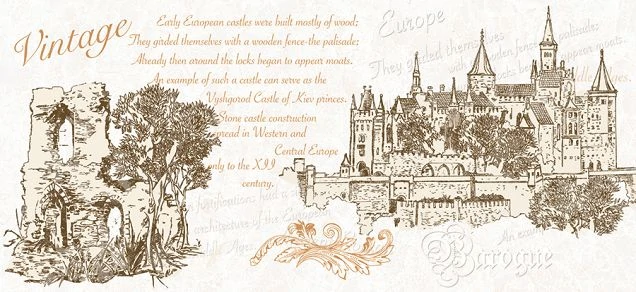 Vintage
Early European castles were built mostly of wood;
They girded themselves with a wooden fence-the palisade;
Already then around the locks began to appear moats.
An example of such a castle can serve as the
Vyshgorod Castle of Kiev princes.
Stone castle construction
spread in Western and
Central Europe
only to the XII
century.
Europe
They girded themselves
with a wooden fence-the palisade;
locks began to appear
Middle Ages
fortifications had a
architecture of the European
Middle Ages.
An example
Baroque